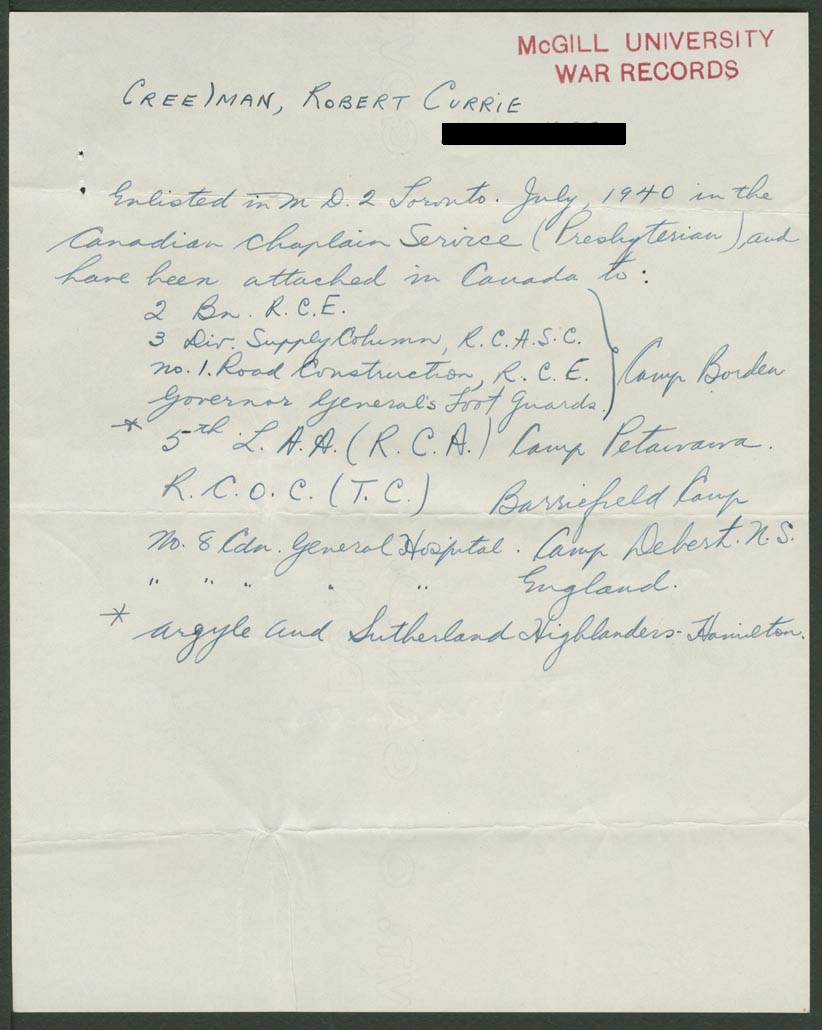 McGILL UNIVERSITY
WAR RECORDS
CREELMAN, ROBERT CURRIE
Enlisted in M D. 2 Toronto. July, 1940 in the
Canadian Chaplain Service (Presbyterian), and
have been attached in Canada to:
2 Bn. R.C.E.
3 Div. Supply Column, R.C.A.S.C.
No. 1. Road Construction, R.C.E. } Camp Borden
Governor General's Foot Guards.
* 5th L.A.A. (R.C.A.) Camp Petawawa.
R.C.O.C. (T.C.) Barriefield Camp
No. 8 Cdn. General Hospital. Camp Debert. N.S.
" " " " " England.
* Argyle and Sutherland Highlanders - Hamilton.